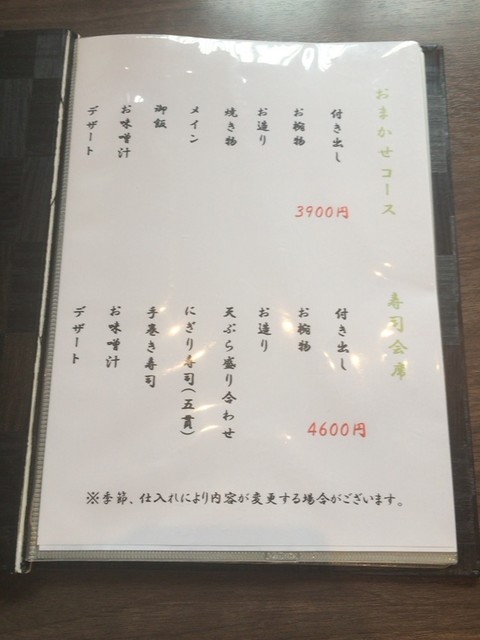 おまかせコース
付き出し
お椀物
お造り
焼き物
メイン
御飯
お味噌汁
デザート
3900円
寿司会席
付き出し
お椀物
お造り
天ぷら盛り合わせ
にぎり寿司(五貫)
手巻き寿司
お味噌汁
デザート
4600円
※季節、仕入れにより内容が変更する場合がございます。